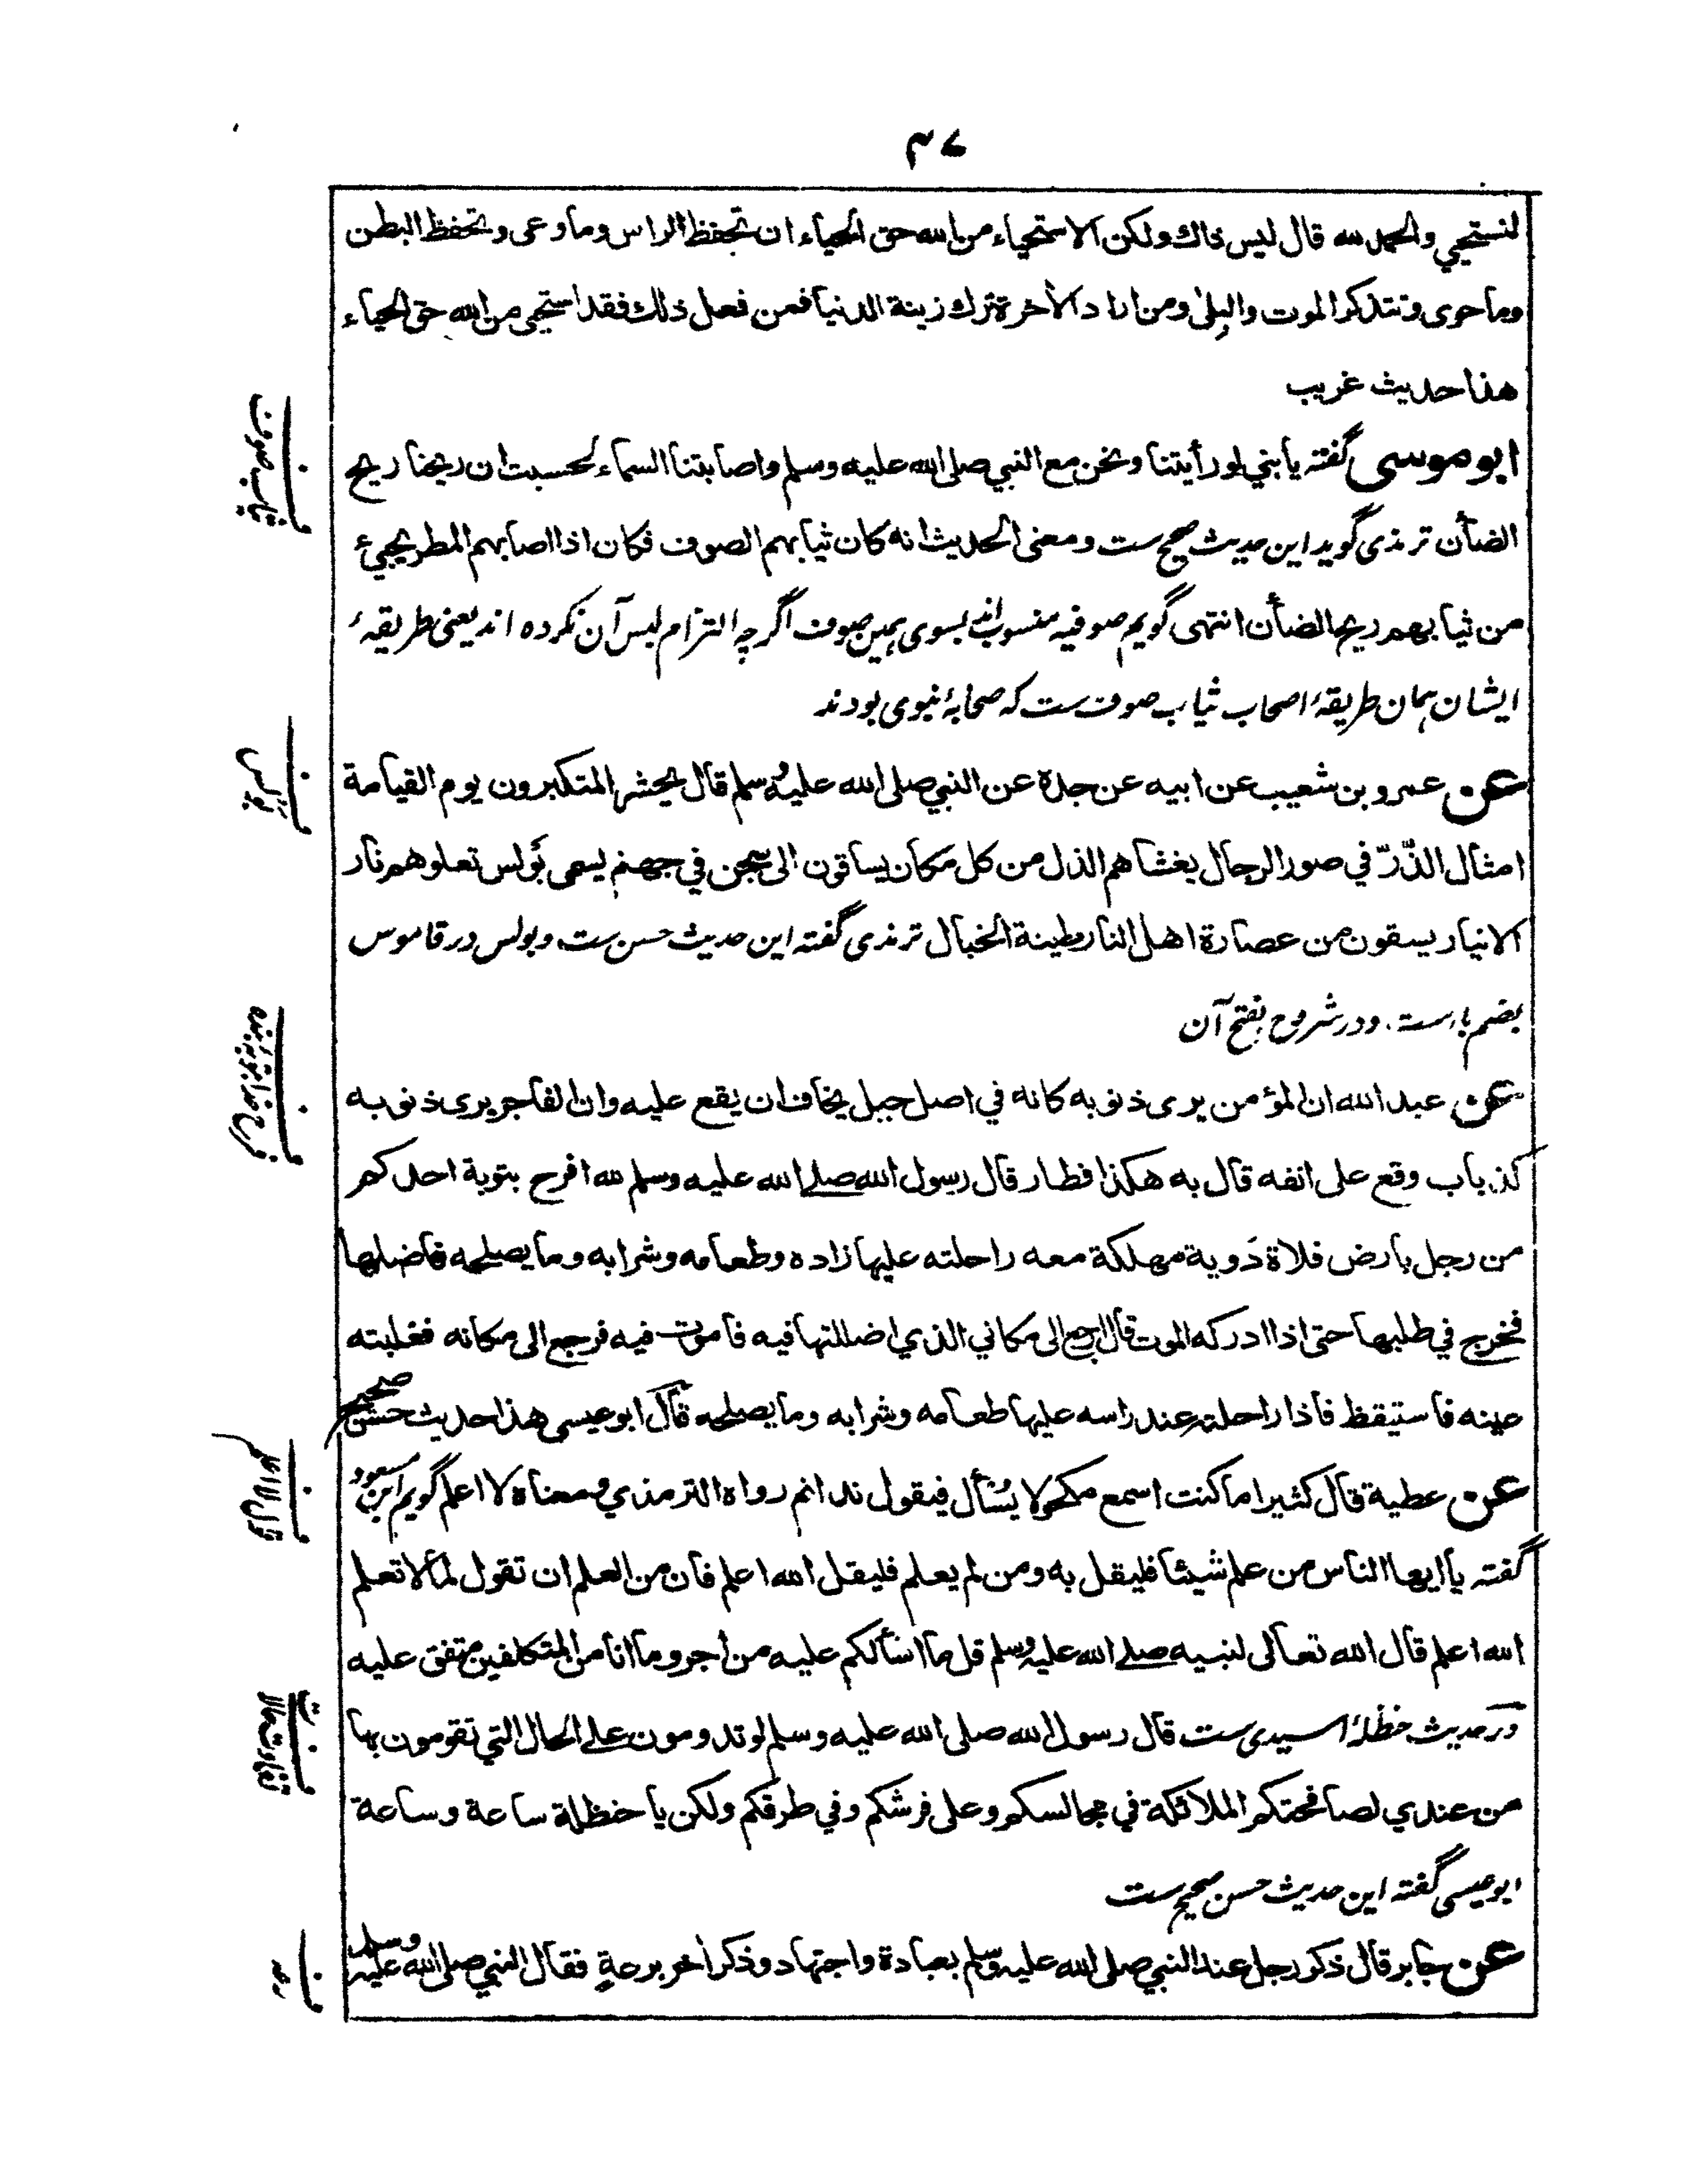 ۴۷
لنستحيي والحمد لله قال ليس ذاك ولكن الاستحياء من الله حق الحياء ان تحفظ الراس وما وعى وتحفظ البطن
وما حوى وتتذكر الموت والبلى ومن اراد الآخرة ترك زينة الدنيا فمن فعل ذلك فقد استحيى من الله حق الحياء
هذا حديث غريب
ابو موسى گفته يا بني لو رأيتنا ونحن مع النبي صلى الله عليه وسلم واصابتنا السماء لحسبت ان ريحنا ريح
الضأن ترمذی گوید این حدیث صحیح ست ومعنى الحديث انه كان ثيابهم الصوف فكان اذا اصابهم المطر يجيء
من ثيابهم ريح الضأن انتهى گویم صوفیه منسوب اند بسوی همین صوف اگرچه التزام لبس آن نکرده اند یعنی طریقهٔ
ایشان همان طریقهٔ اصحاب ثیاب صوف ست که صحابهٔ نبوی بودند
عن عمرو بن شعيب عن ابيه عن جده عن النبي صلى الله عليه وسلم قال يحشر المتكبرون يوم القيامة
امثال الذّرّ في صور الرجال يغشاهم الذل من كل مكان يساقون الى سجن في جهنم يسمى بَولس تعلوهم نار
الانيار يسقون من عصارة اهل النار طينة الخبال ترمذی گفته این حدیث حسن ست وبولس در قاموس
بضم با ست ودر شروح بفتح آن
عن عبد الله ان المؤمن يرى ذنوبه كانه في اصل جبل يخاف ان يقع عليه وان الفاجر يرى ذنوبه
كذباب وقع على انفه قال به هكذا فطار قال رسول الله صلى الله عليه وسلم لله افرح بتوبة احدكم
من رجل بارض فلاة دَوية مهلكة معه راحلته عليها زاده وطعامه وشرابه وما يصلحه فاضلها
فخرج في طلبها حتى اذا ادركه الموت قال ارجع الى مكاني الذي اضللتها فيه فاموت فيه فرجع الى مكانه فغلبته
عينه فاستيقظ فاذا راحلته عند راسه عليها طعامه وشرابه وما يصلحه قال ابو عيسى هذا حديث حسن صحيح
عن عطية قال كثيرا ما كنت اسمع مكحولا يُسْأل فيقول ندانم رواه الترمذي ومعناه لا اعلم گویم ابن مسعود
گفته يا ايها الناس من علم شيئا فليقل به ومن لم يعلم فليقل الله اعلم فان من العلم ان تقول لما لا تعلم
الله اعلم قال الله تعالى لنبيه صلى الله عليه وسلم قل ما اسألكم عليه من أجر وما انا من المتكلفين متفق عليه
در حدیث حنظلهٔ اسیدی ست قال رسول الله صلى الله عليه وسلم لو تدومون على الحال التي تقومون بها
من عندي لصافحتكم الملائكة في مجالسكم وعلى فرشكم وفي طرقكم ولكن يا حنظلة ساعة وساعة
ابو عیسی گفته این حدیث حسن صحیح ست
عن جابر قال ذكر رجل عند النبي صلى الله عليه وسلم بعبادة واجتهاد وذكر آخر برعةٍ فقال النبي صلى الله عليه وسلم
ف ثیاب صوف
ف بولس
ف فرح خدا بتوبه بنده
ف قول لا اعلم
ف تفاوت حال